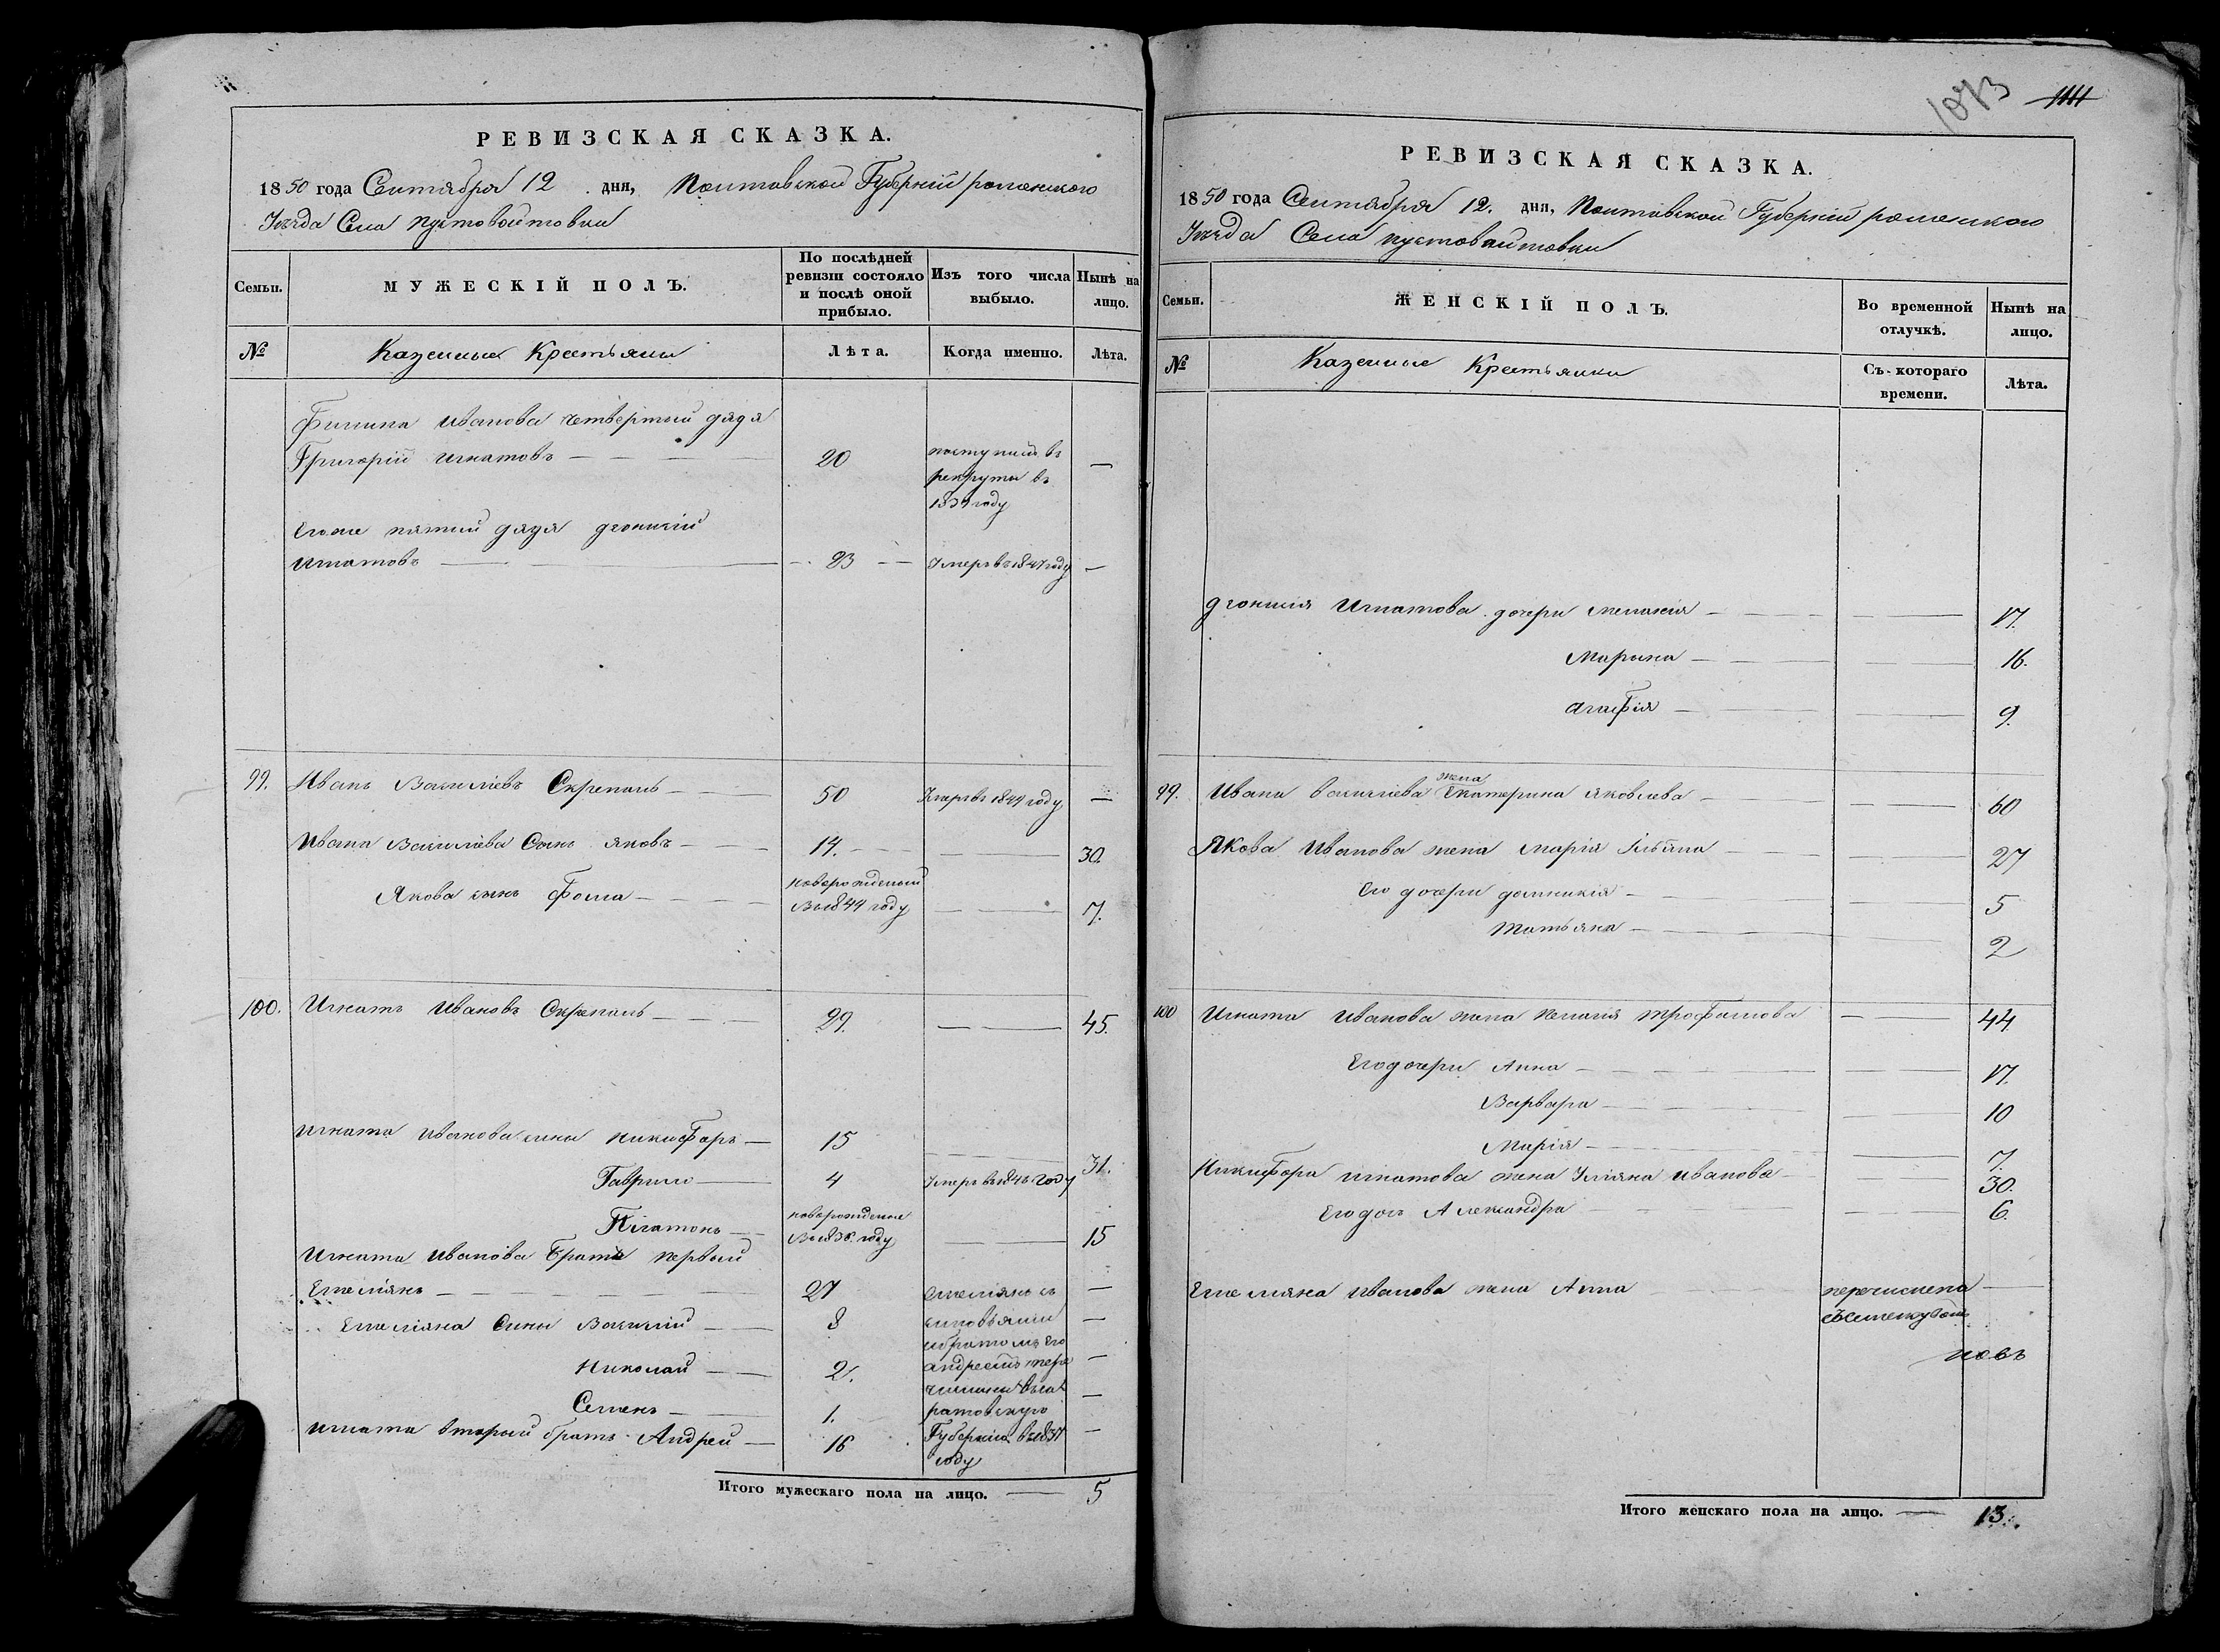 РЕВИЗСКАЯ СКАЗКА.
1850 года Сентября 12 дня, Полтавской Губерніи роменского
Уѣзда Села пустовойтовки
Семьи.
МУЖЕСКІЙ ПОЛЪ.
По послѣдней ревизіи состояло и послѣ оной прибыло.
Изъ того числа выбыло.
Нынѣ на лицо.
№ Казенные Крестьяни Лѣта. Когда именно. Лѣта.
Филипа иванова четвертый дядя
Григорій игнатовъ 20 поступилъ въ —
рекруты въ
1834 году
Егоже пятый дядя
игнатовъ 23 Умеръ въ 1847 году —
99. Иванъ Василіевъ Скрепаль 50 Умеръ въ 1844 году —
Ивана Василиева Сынъ яковъ 14. 30.
Якова сынъ Фома новорожденый
въ 1844 году 7.
100. Игнатъ Ивановъ Скрепаль 29. 45.
Игната иванова сины никифоръ 15 31.
Гаврило 4 Умеръ въ 1846 году
Платонъ новорожденые
въ 1836 году 15
Игната иванова братъ первый
Емеліянъ 27 емеліянъ съ —
Емеліяна Сины Василій 8 сыновьями —
и братомъ его
Николай 2. андреемъ пере —
числены въ са
Семенъ 1. ратовскую —
игната вторый братъ Андрей 16 Губернію въ 1837 —
году
Итого мужескаго пола на лицо. 5
1073 1111
РЕВИЗСКАЯ СКАЗКА.
1850 года Сентября 12. дня, Полтавской Губерніи роменского
Уѣзда Села пустовайтовки
Семьи.
ЖЕНСКІЙ ПОЛЪ.
Во временной отлучкѣ.
Нынѣ на лицо.
№ Казенные Крестьянки Съ котораго времени. Лѣта.
Игнатова дочери мелания 17.
Марина 16.
агафія 9.
жена
99. Ивана василиева Екатерина яковлева 60
Якова Иванова жена марія Ильина 27
Его дочери домникія 5
татьяна 2
100 Игната иванова жена пелагія трофимова 44
Его дочери Анна 17.
Варвара 10
Марія 7.
Никифора игнатова жена Уліяна иванова 30.
Его дочь Александра 6.
Емеліяна иванова жена Анна перечислена
новъ
Итого женскаго пола на лицо. 13.